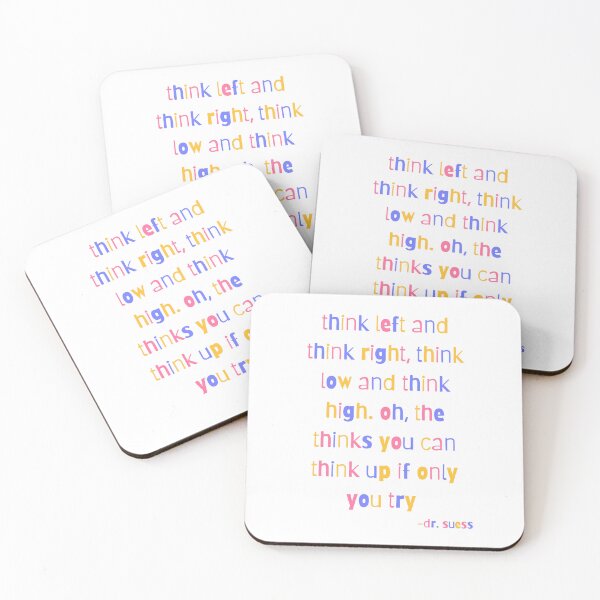 think left and
think right, think
low and think
high. the
can
think left and
think right, think
low and think
high. oh, the
thinks you can
think up if only
think left and
think right, think
low and think
high. oh, the
thinks you can
think up if
you try
think left and
think right, think
low and think
high. oh, the
thinks you can
think up if only
you try
-dr. suess